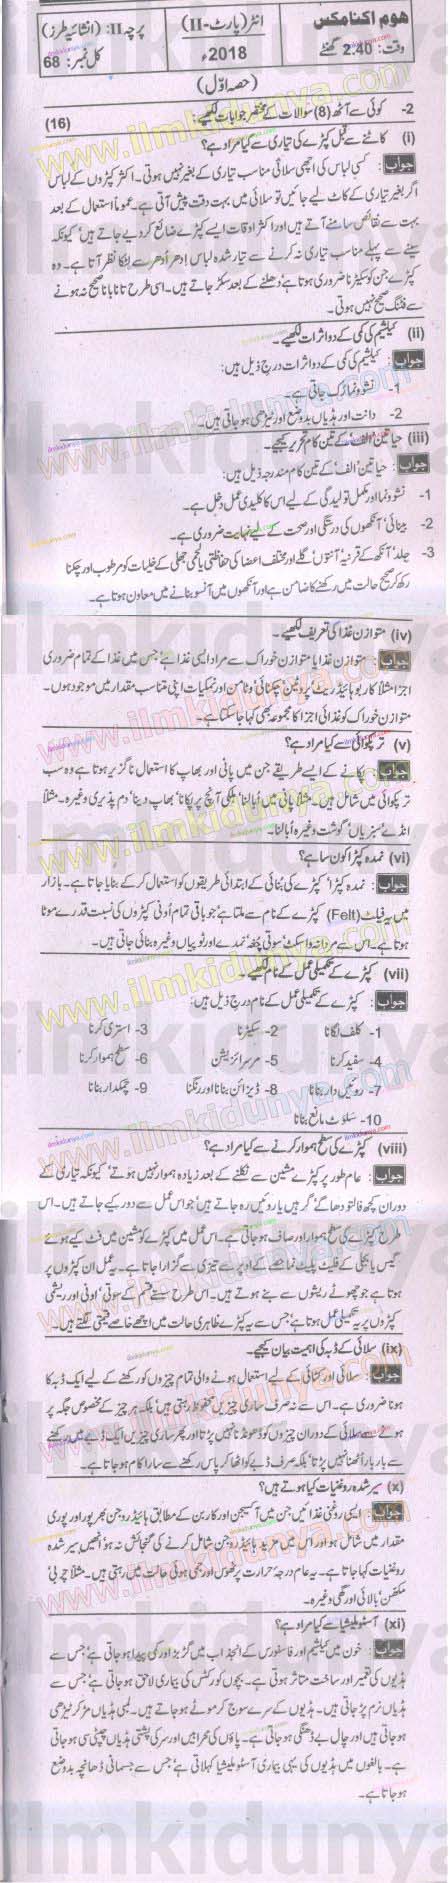 ہوم اکنامکس
انٹر (پارٹ-II)
پرچہ II: (انشائیہ طرز)
وقت: 2:40 گھنٹے
2018ء
کل نمبر: 68
(حصہ اوّل)
2- کوئی سے آٹھ (8) سوالات کے مختصر جوابات لکھیے: (16)
(i) کاٹنے سے قبل کپڑے کی تیاری سے کیا مراد ہے؟
جواب: کسی لباس کی اچھی سلائی مناسب تیاری کے بغیر نہیں ہوتی۔ اکثر کپڑوں کے لباس
اگر بغیر تیاری کے کاٹ لیے جائیں تو سلائی میں بہت دقت پیش آتی ہے۔ عموماً استعمال کے بعد
بہت سے نقائص سامنے آتے ہیں اور اکثر اوقات ایسے کپڑے ضائع کر دیے جاتے ہیں' کیونکہ
سینے سے پہلے مناسب تیاری نہ کرنے سے تیار شدہ لباس اِدھر اُدھر سے لٹکا نظر آتا ہے۔ وہ
کپڑے جن کو سکیڑنا ضروری ہوتا ہے' دھلنے کے بعد سکڑ جاتے ہیں۔ اسی طرح تانا بانا صحیح نہ ہونے
سے فٹنگ صحیح نہیں ہوتی۔
(ii) کیلشیم کی کمی کے دو اثرات لکھیے۔
جواب: کیلشیم کی کمی کے دو اثرات درج ذیل ہیں:
1- نشوونما رُک جاتی ہے۔
2- دانت اور ہڈیاں بدوضع اور ٹیڑھی ہو جاتی ہیں۔
(iii) حیاتین 'الف' کے تین کام تحریر کیجیے۔
جواب: حیاتین 'الف' کے تین کام مندرجہ ذیل ہیں:
1- نشوونما اور مکمل تولیدگی کے لیے اس کا کلیدی عمل دخل ہے۔
2- بینائی' آنکھوں کی درستگی اور صحت کے لیے نہایت ضروری ہے۔
3- جلد' آنکھ کے قرنیہ' آنتوں' گلے اور مختلف اعضا کی حفاظتی یا لحمی جھلی کے خلیات کو مرطوب اور چکنا
رکھ کر صحیح حالت میں رکھنے کا ضامن ہے اور آنکھوں میں آنسو بنانے میں معاون ہوتا ہے۔
(iv) متوازن غذا کی تعریف لکھیے۔
جواب: متوازن غذا یا متوازن خوراک سے مراد ایسی غذا ہے' جس میں غذا کے تمام ضروری
اجزا مثلاً کاربوہائیڈریٹ' پروٹین' چکنائی' وٹامن اور نمکیات اپنی متناسب مقدار میں موجود ہوں۔
متوازن خوراک کو غذائی اجزا کا مجموعہ بھی کہا جا سکتا ہے۔
(v) تر پکوائی سے کیا مراد ہے؟
جواب: پکانے کے ایسے طریقے جن میں پانی اور بھاپ کا استعمال ناگزیر ہوتا ہے وہ سب
تر پکوائی میں شامل ہیں۔ مثلاً پانی میں اُبالنا' ہلکی آنچ پر پکانا' بھاپ دینا' دم پذیری وغیرہ۔ مثلاً
انڈے' سبزیاں' گوشت وغیرہ اُبالنا۔
(vi) نمدہ کپڑا کون سا ہے؟
جواب: نمدہ کپڑا' کپڑے کی بُنائی کے ابتدائی طریقوں کو استعمال کر کے بنایا جاتا ہے۔ بازار
میں یہ فیلٹ (Felt) کپڑے کے نام سے ملتا ہے' جو باقی تمام اُونی کپڑوں کی نسبت قدرے موٹا
ہوتا ہے۔ اس سے مردانہ واسکٹ' سوتی چغہ' نمدے اور ٹوپیاں وغیرہ بنائی جاتی ہیں۔
(vii) کپڑے کے تکمیلی عمل کے نام لکھیے۔
جواب: کپڑے کے تکمیلی عمل کے نام درج ذیل ہیں:
1- کلف لگانا 2- سکیڑنا 3- استری کرنا
4- سفید کرنا 5- مرسرائزیشن 6- سطح ہموار کرنا
7- روئیں دار بنانا 8- ڈیزائن بنانا اور رنگنا 9- چمکدار بنانا
10- سلوٹ مانع بنانا
(viii) کپڑے کی سطح ہموار کرنے سے کیا مراد ہے؟
جواب: عام طور پر کپڑے مشین سے نکلنے کے بعد زیادہ ہموار نہیں ہوتے' کیونکہ تیاری کے
دوران کچھ فالتو دھاگے' گرہیں یا روئیں رہ جاتے ہیں' جو اس عمل سے دور کیے جاتے ہیں۔ اس
طرح کپڑے کی سطح ہموار اور صاف ہو جاتی ہے۔ اس عمل میں کپڑے کو مشین میں فٹ کیے ہوئے
گیس یا بجلی کے فلیٹ پلیٹ نما حصے کے اوپر سے تیزی سے گزارا جاتا ہے۔ یہ عمل ان کپڑوں پر
ہوتا ہے جو چھوٹے ریشوں سے بنے ہوتے ہیں۔ اس طرح سستے قسم کے سوتی' اونی اور ریشمی
کپڑوں پر یہ تکمیلی عمل ہوتا ہے' جس سے یہ کپڑے ظاہری حالت میں اچھے خاصے قیمتی لگتے ہیں۔
(ix) سلائی کے ڈبہ کی اہمیت بیان کیجیے۔
جواب: سلائی اور کٹائی کے لیے استعمال ہونے والی تمام چیزوں کو رکھنے کے لیے ایک ڈبہ کا
ہونا ضروری ہے۔ اس سے نہ صرف ساری چیزیں محفوظ رہتی ہیں' بلکہ ہر چیز کے مخصوص جگہ پر
ہونے سے سلائی کے دوران چیزوں کو ڈھونڈنا نہیں پڑتا اور پھر ساری چیزیں ایک ڈبے میں رکھنے
سے بار بار اُٹھنا نہیں پڑتا' بلکہ صرف ڈبے کو اٹھا کر پاس رکھنے سے سارا کام ہو جاتا ہے۔
(x) سیر شدہ روغنیات کیا ہوتے ہیں؟
جواب: ایسی روغنی غذائیں جن میں آکسیجن اور کاربن کے مطابق ہائیڈروجن بھرپور اور پوری
مقدار میں شامل ہو اور اس میں مزید ہائیڈروجن شامل کرنے کی گنجائش نہ ہو' انھیں سیر شدہ
روغنیات کہا جاتا ہے۔ یہ عام درجہ حرارت پر ٹھوس اور جمی ہوئی حالت میں رہتی ہیں۔ مثلاً چربی'
مکھن' بالائی اور گھی وغیرہ۔
(xi) آسٹوملیشیا سے کیا مراد ہے؟
جواب: خون میں کیلشیم اور فاسفورس کے انجذاب میں گڑبڑ اور کمی پیدا ہو جاتی ہے' جس سے
ہڈیوں کی تعمیر اور ساخت متاثر ہوتی ہے۔ بچوں کو رکٹس کی بیماری لاحق ہو جاتی ہے' جس سے
ہڈیاں نرم پڑ جاتی ہیں۔ ہڈیوں کے سرے سوج کر موٹے ہو جاتے ہیں۔ لمبی ہڈیاں مڑ کر ٹیڑھی
ہو جاتی ہیں اور چال بے ڈھنگی ہو جاتی ہے۔ پاؤں کی محرابیں اور سر کی پشتی ہڈیاں چپٹی سی ہو جاتی
ہے۔ بالغوں میں ہڈیوں کی یہی بیماری آسٹوملیشیا کہلاتی ہے' جس سے جسمانی ڈھانچہ بدوضع
ہو جاتا ہے۔